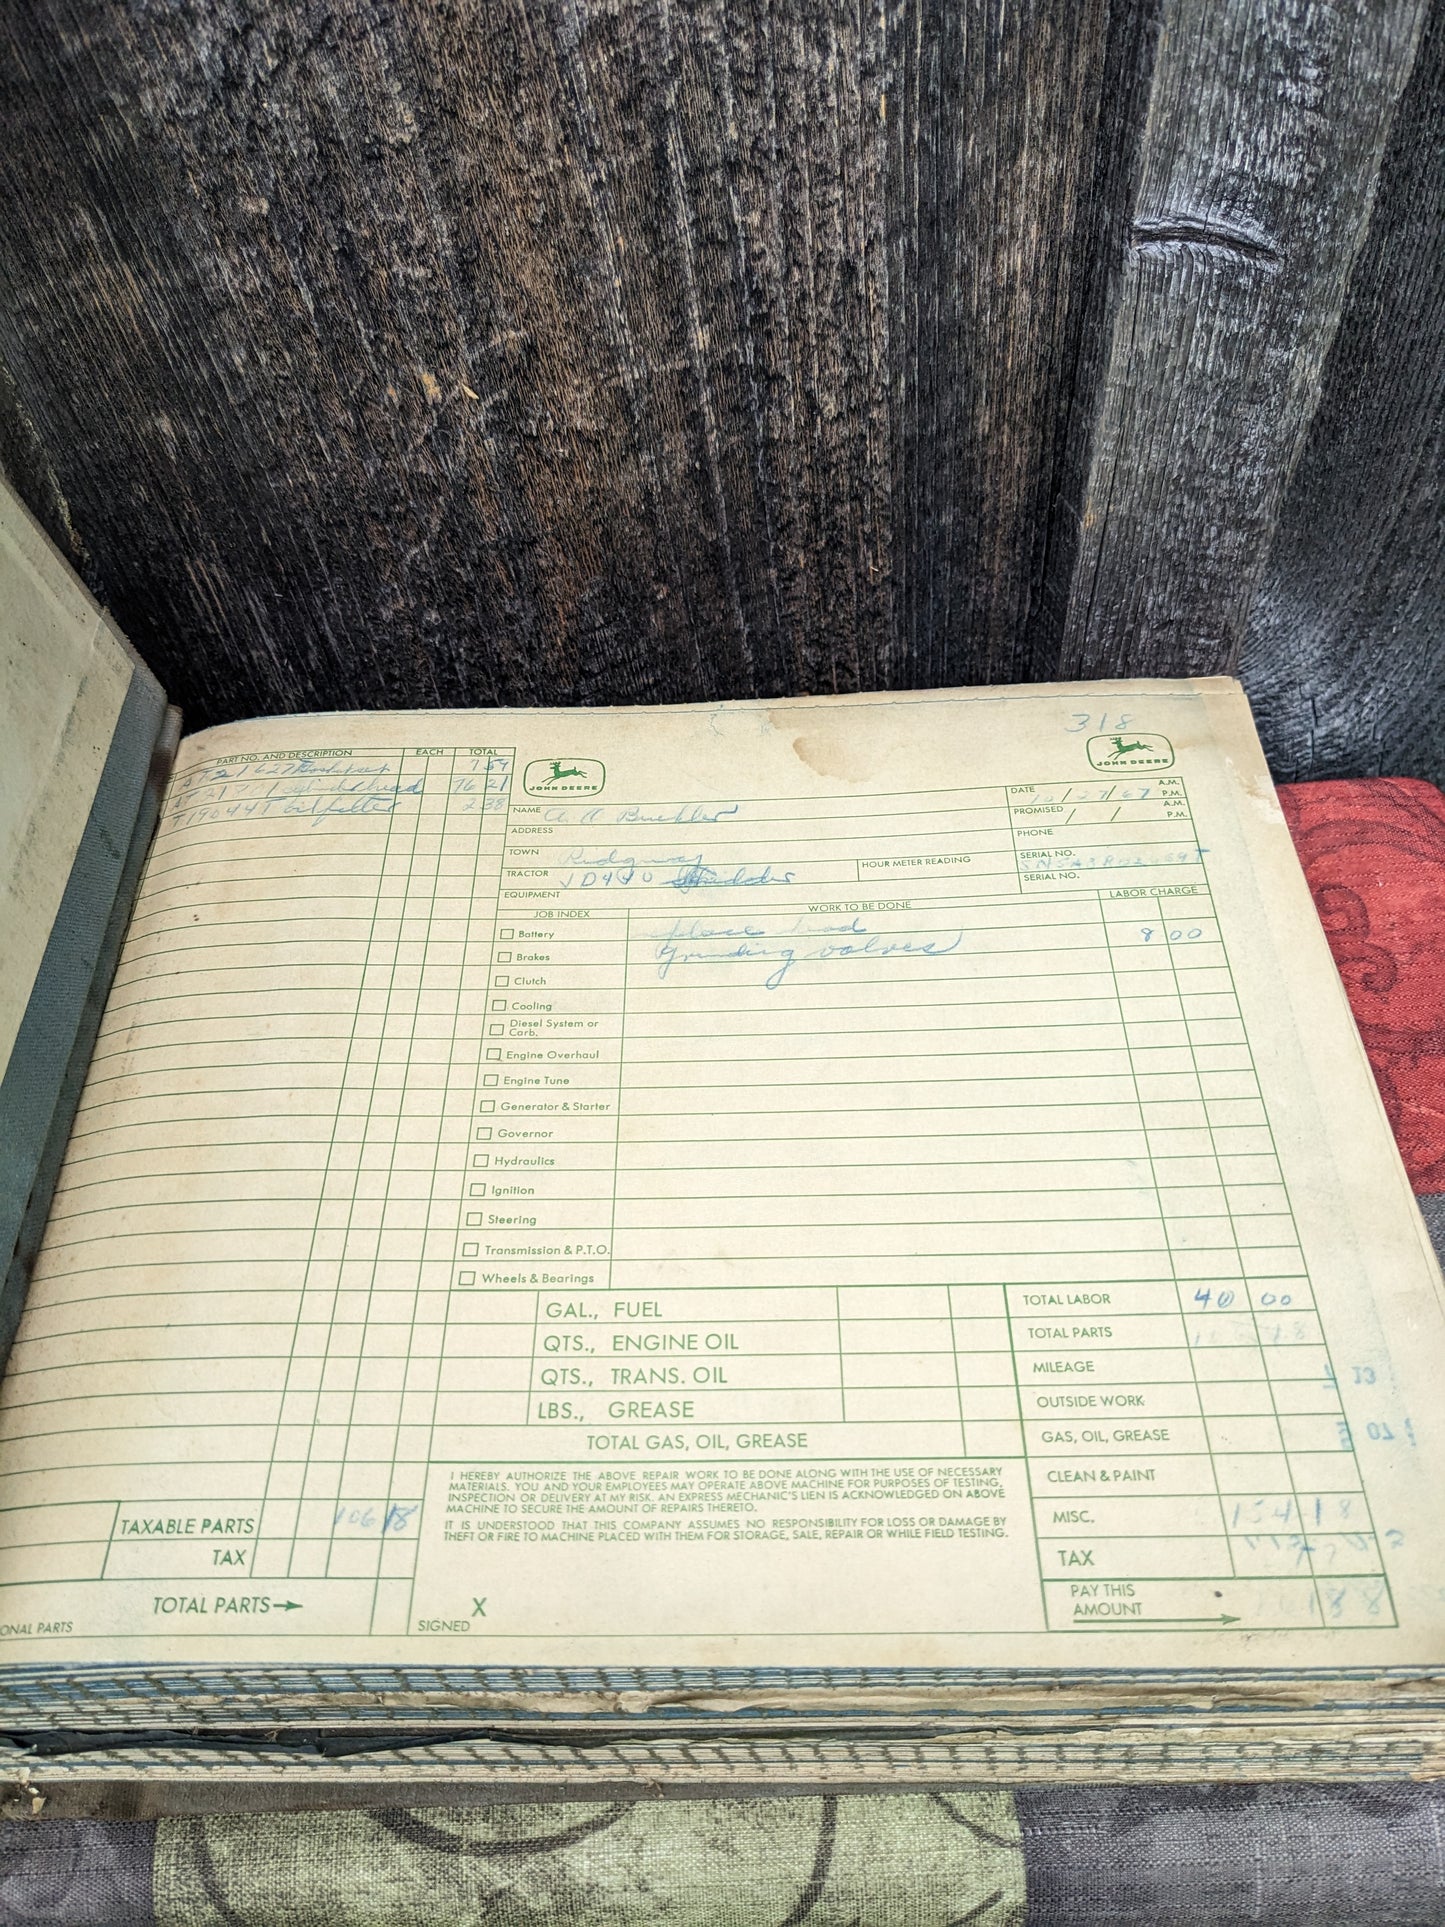 318
PART NO. AND DESCRIPTION EACH TOTAL
7 59
cylinder head 76 21
T19044T oil filter 2.38
JOHN DEERE
JOHN DEERE
NAME
DATE 10/27/67 A.M. P.M.
ADDRESS
PROMISED / / A.M. P.M.
PHONE
TOWN Ridgway
SERIAL NO.
TRACTOR JD440
HOUR METER READING
SERIAL NO.
EQUIPMENT
JOB INDEX WORK TO BE DONE LABOR CHARGE
Battery head 8 00
Brakes Grinding valves
Clutch
Cooling
Diesel System or Carb.
Engine Overhaul
Engine Tune
Generator & Starter
Governor
Hydraulics
Ignition
Steering
Transmission & P.T.O.
Wheels & Bearings
GAL., FUEL
QTS., ENGINE OIL
QTS., TRANS. OIL
LBS., GREASE
TOTAL GAS, OIL, GREASE
TOTAL LABOR 40 00
TOTAL PARTS
MILEAGE
OUTSIDE WORK
GAS, OIL, GREASE
CLEAN & PAINT
MISC. 154 18
TAX
PAY THIS AMOUNT
I HEREBY AUTHORIZE THE ABOVE REPAIR WORK TO BE DONE ALONG WITH THE USE OF NECESSARY
MATERIALS. YOU AND YOUR EMPLOYEES MAY OPERATE ABOVE MACHINE FOR PURPOSES OF TESTING,
INSPECTION OR DELIVERY AT MY RISK. AN EXPRESS MECHANIC'S LIEN IS ACKNOWLEDGED ON ABOVE
MACHINE TO SECURE THE AMOUNT OF REPAIRS THERETO.
IT IS UNDERSTOOD THAT THIS COMPANY ASSUMES NO RESPONSIBILITY FOR LOSS OR DAMAGE BY
THEFT OR FIRE TO MACHINE PLACED WITH THEM FOR STORAGE, SALE, REPAIR OR WHILE FIELD TESTING.
TAXABLE PARTS 106 18
TAX
TOTAL PARTS
ONAL PARTS
SIGNED X